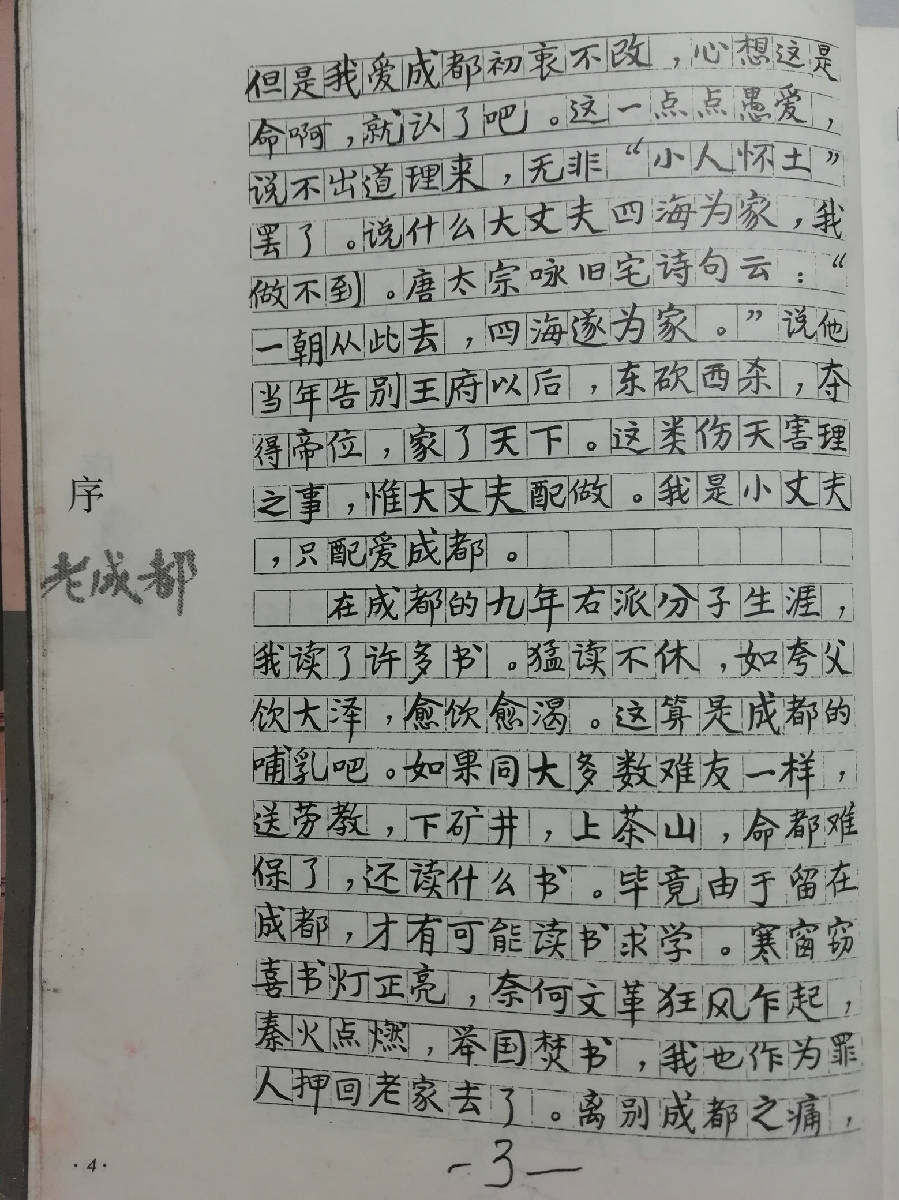 但是我爱成都初衷不改，心想这是
命啊，就认了吧。这一点点愚爱，
说不出道理来，无非“小人怀土”
罢了。说什么大丈夫四海为家，我
做不到。唐太宗咏旧宅诗句云：“
一朝从此去，四海遂为家。”说他
当年告别王府以后，东砍西杀，夺
得帝位，家了天下。这类伤天害理
之事，惟大丈夫配做。我是小丈夫
，只配爱成都。
在成都的九年右派分子生涯，
我读了许多书。猛读不休，如夸父
饮大泽，愈饮愈渴。这算是成都的
哺乳吧。如果同大多数难友一样，
送劳教，下矿井，上茶山，命都难
保了，还读什么书。毕竟由于留在
成都，才有可能读书求学。寒窗窃
喜书灯正亮，奈何文革狂风乍起，
秦火点燃，举国焚书，我也作为罪
人押回老家去了。离别成都之痛，
-3-
序
老成都
·4·